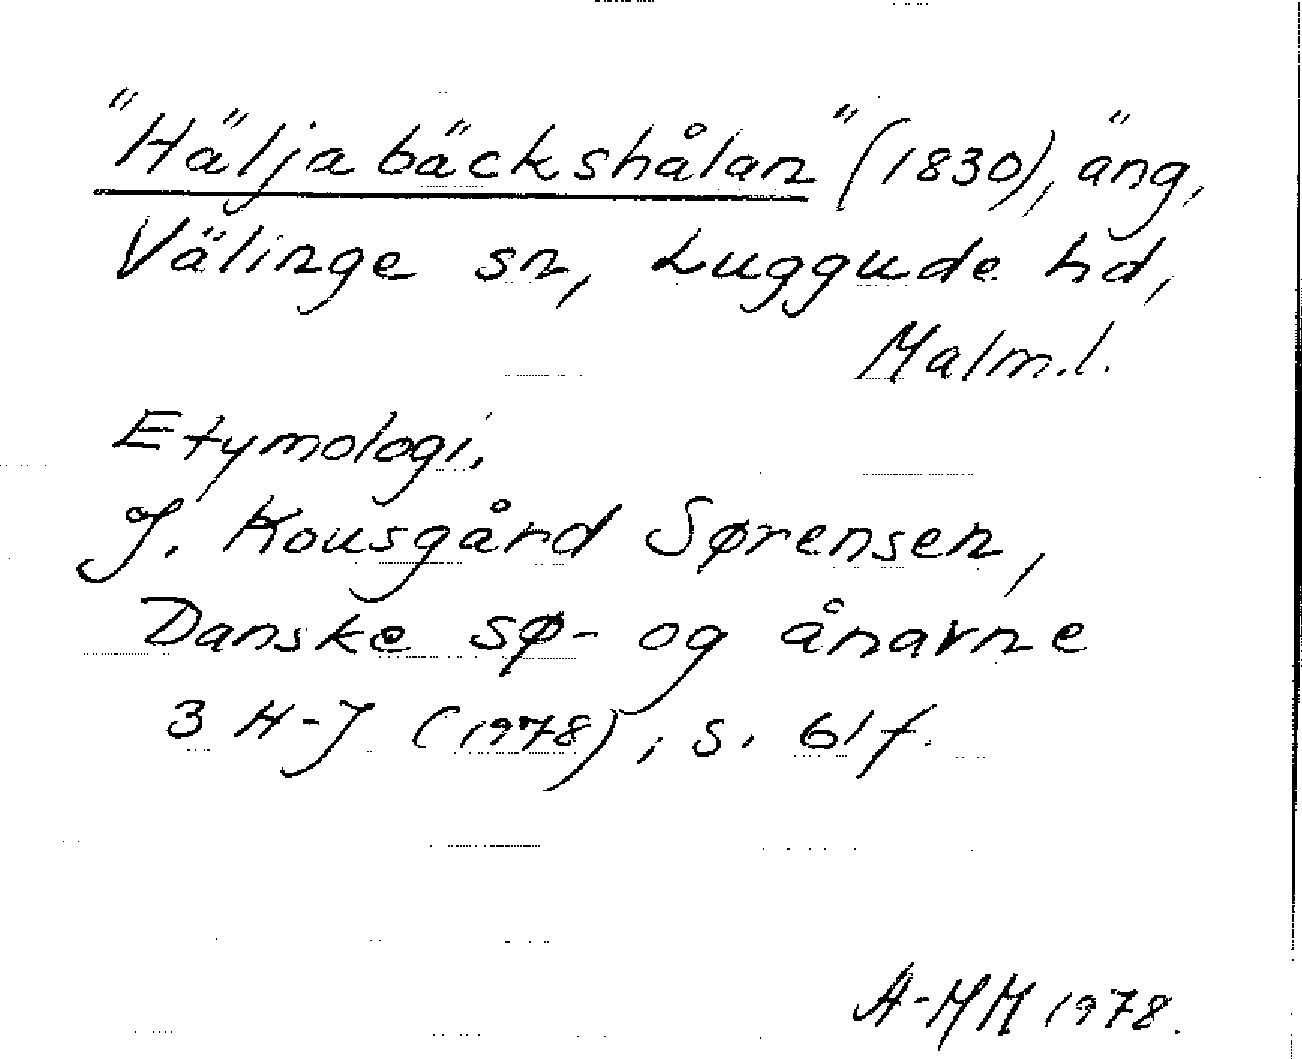 "Häljabäckshålan" (1830), äng,
Välinge sn, Luggude hd,
Malm.l.
Etymologi.
J. Kousgård Sørensen,
Danske sø- og ånavne
3 H-J (1978), s. 61 f.
A-MM 1978.